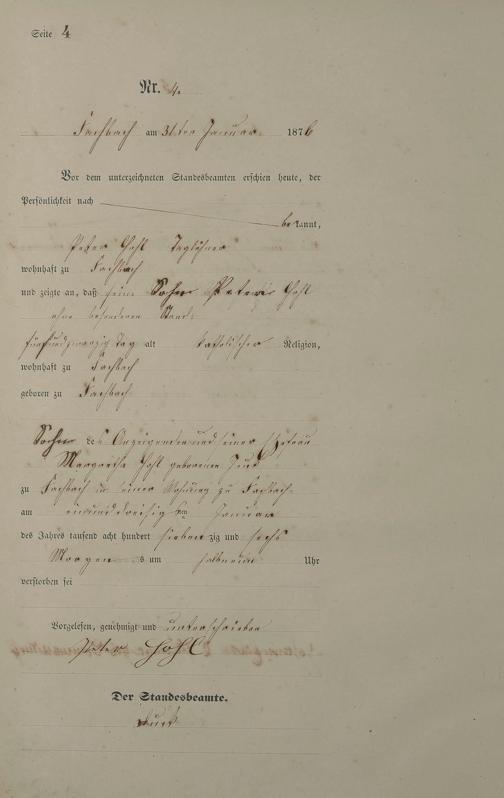 Seite 4
Nr. 4.
Fachbach am 31ten Januar 1876
Vor dem unterzeichneten Standesbeamten erschien heute, der
Persönlichkeit nach
bekannt,
Peter Hohl Taglöhner
wohnhaft zu Fachbach
und zeigte an, daß sein Sohn Peter Hohl
ohne besonderen Stand
fünfundzwanzig Tag alt katholischer Religion,
wohnhaft zu Fachbach
geboren zu Fachbach
Sohn des Anzeigenden und seiner Ehefrau
Margaretha Hohl geborenen
zu Fachbach in seiner Wohnung zu Fachbach
am einunddreisigten Januar
des Jahres tausend acht hundert siebenzig und sechs
Morgens um halb neun Uhr
verstorben sei
Vorgelesen, genehmigt und unterschrieben
Peter Hohl
Der Standesbeamte.